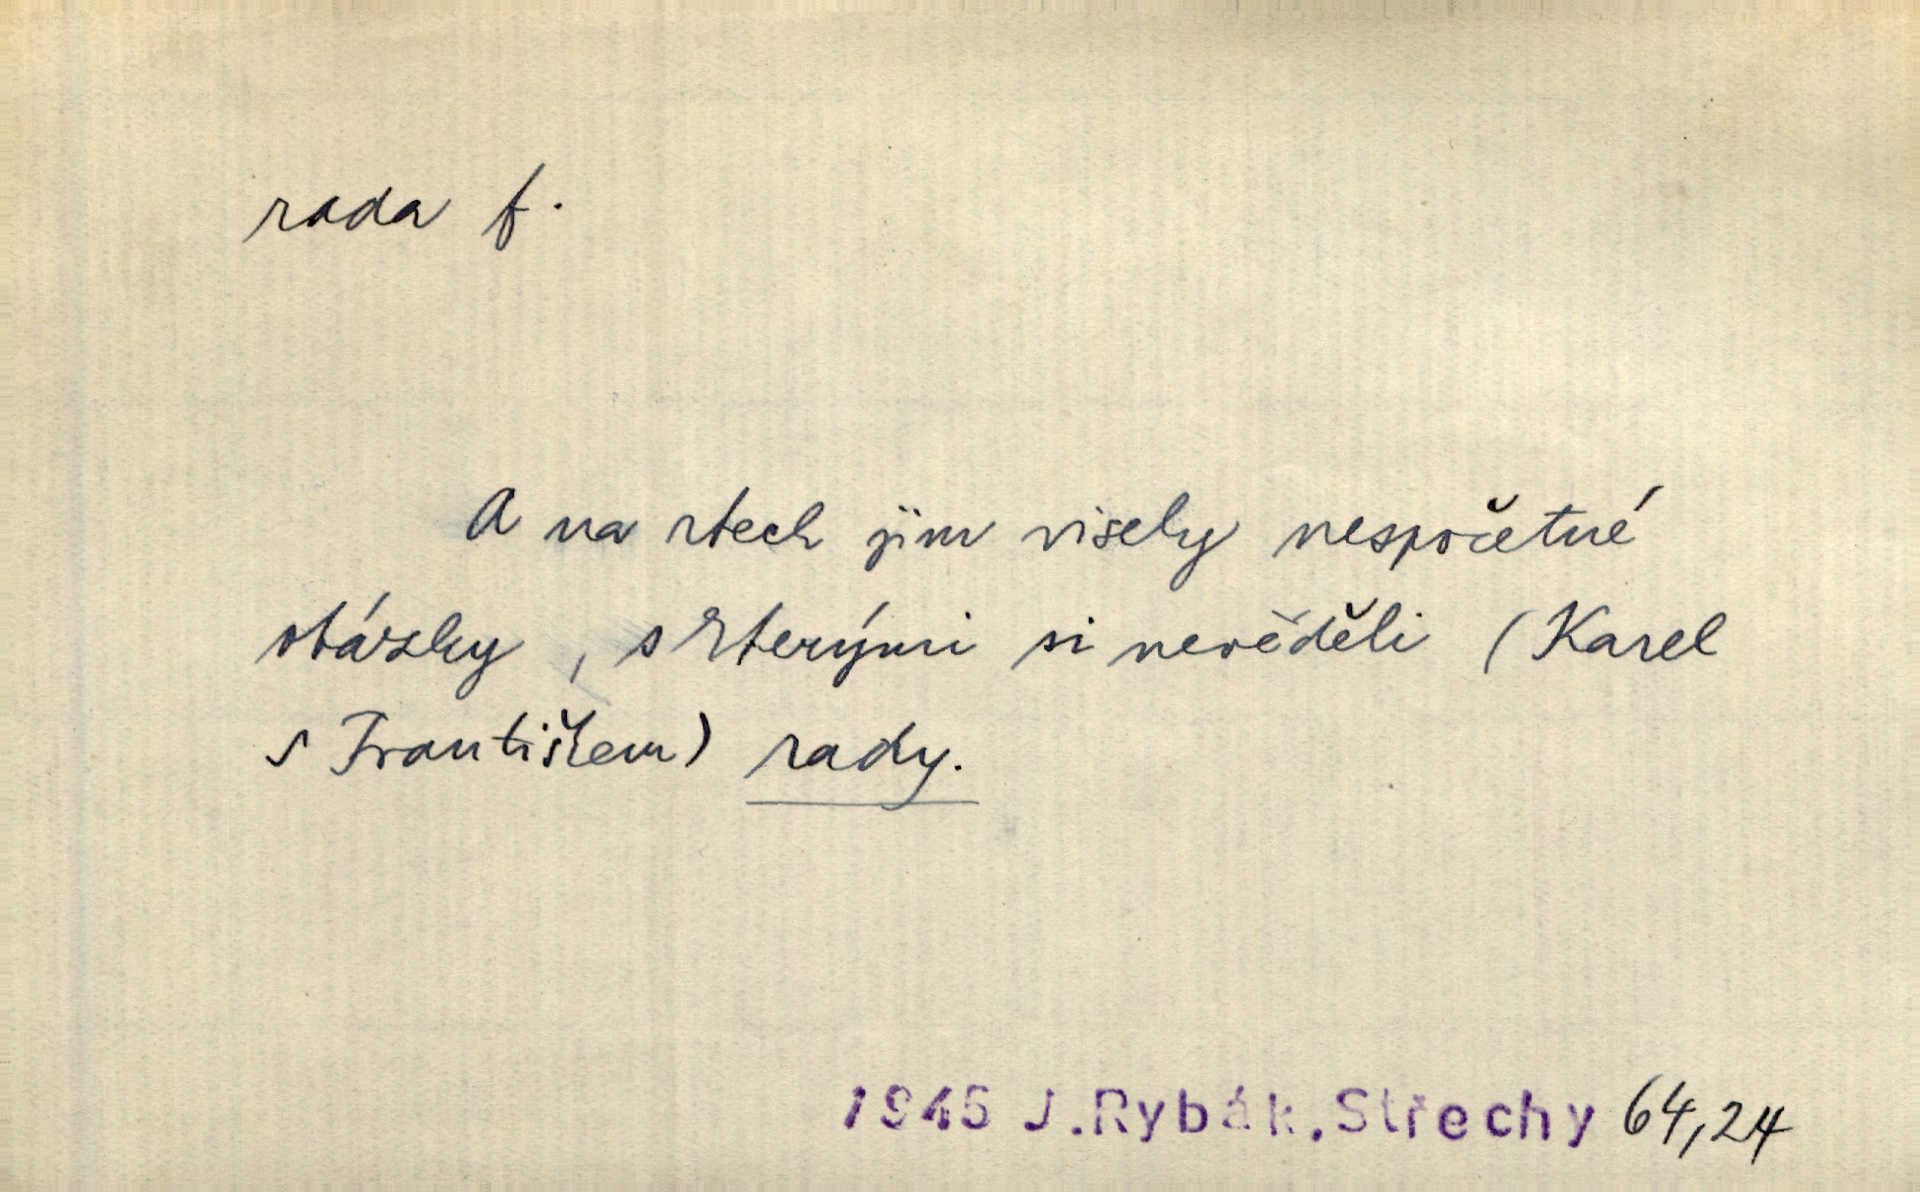 rada f.
A na rtech jim visely nespočetné
otázky, s kterými si nevěděli (Karel
s Františkem) rady.
1945 J.Rybák.Střechy 64,24